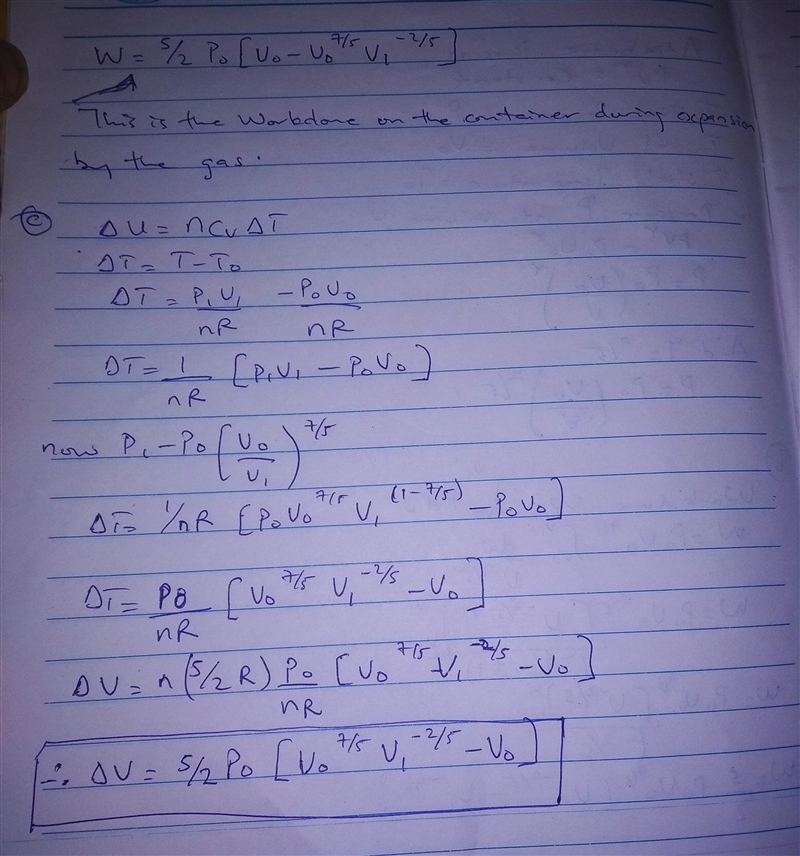 W = 5/2 P₀ [V₀ - V₀^7/5 V₁^-2/5]
This is the Workdone on the container during expansion
by the gas.
(c) ΔU = nCvΔT
ΔT = T - T₀
ΔT = P₁V₁/nR - P₀V₀/nR
ΔT = 1/nR [P₁V₁ - P₀V₀]
now P₁ - P₀ (V₀/V₁)^7/5
ΔT = 1/nR [P₀V₀^7/5 V₁^(1-7/5) - P₀V₀]
ΔT = P₀/nR [V₀^7/5 V₁^-2/5 - V₀]
ΔU = n(5/2 R) P₀/nR [V₀^7/5 V₁^-2/5 - V₀]
∴ ΔU = 5/2 P₀ [V₀^7/5 V₁^-2/5 - V₀]